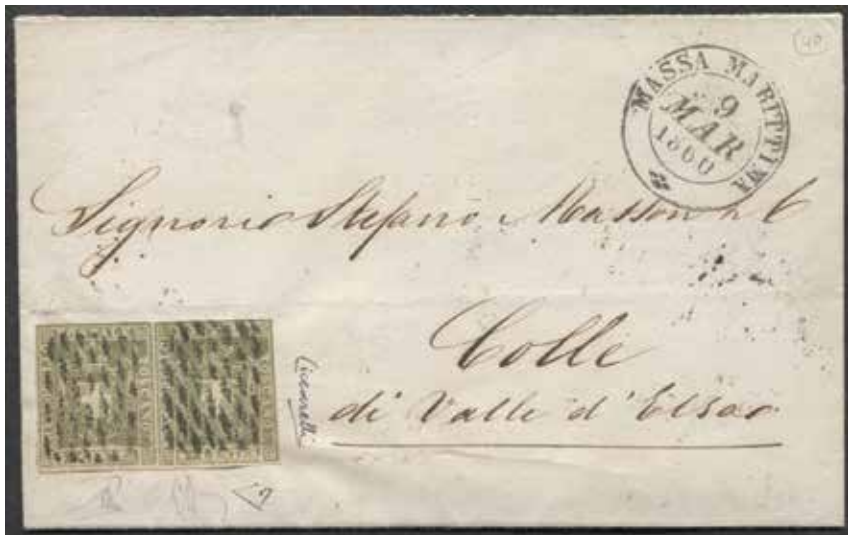 40
MASSA MARITTIMA
9
MAR
1860
Signori Stefano Masson
Colle
di Valle d'Elsa